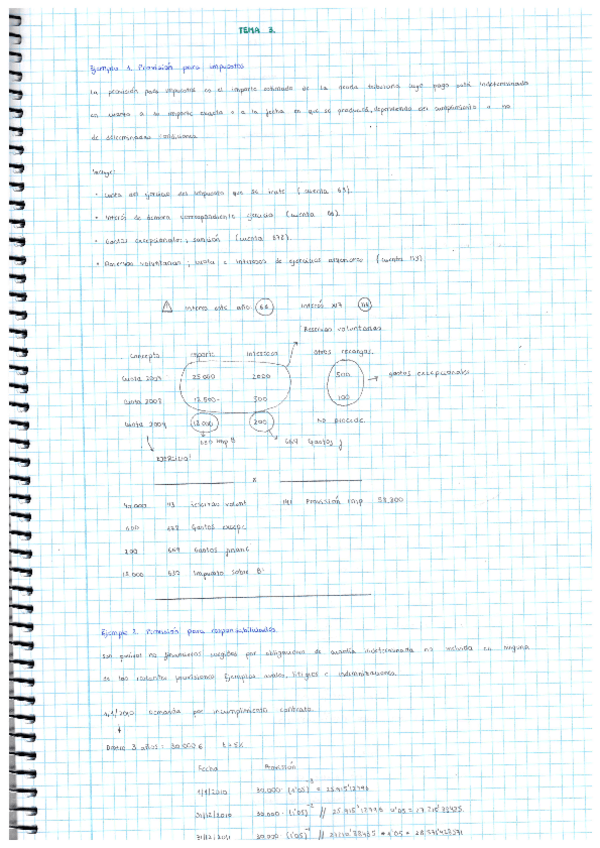 TEMA 3.
Ejemplo 1. Provisión para impuestos
La provisión para impuestos es el importe estimado de la deuda tributaria cuyo pago está indeterminado
en cuanto a su importe exacto o a la fecha en que se producirá, dependiendo del cumplimiento o no
de determinadas condiciones
Incluye:
• Cuota del ejercicio del impuesto que se trate (cuenta 63).
• Interés de demora correspondiente ejercicio (cuenta 66).
• Gastos excepcionales; sanción (cuenta 678).
• Reservas voluntarias; cuota e intereses de ejercicios anteriores (cuenta 113)
interés este año 66 interés 113
Reservas voluntarias
Concepto importe intereses otros recargos.
Cuota 25.000 2000 500 → gastos excepcionales
Cuota 12.500 500 100
Cuota 18.000 200 no procede.
630 imp B 669 Gastos f
EJERCICIO!
x
40.000 113 reservas volunt 141 Provisión imp 58.800
600 678 Gastos excepc
200 669 Gastos financ
18.000 630 Impuesto sobre B:
Ejemplo 2. Provisión para responsabilidades
Son pasivos no financieros surgidos por obligaciones de cuantía indeterminada no incluida en ninguna
de las restantes provisiones. Ejemplos avales, litigios e indemnizaciones.
1/1/2010 demanda por incumplimiento contrato.
Dentro 3 años = 30.000 € t = 5%
Fecha Provisión
1/1/2010 30.000 · (1'05)⁻³ = 25.915'12796
31/12/2010 30.000 · (1'05)⁻² // 25.915'12796
31/12/2011 30.000 (1'05)⁻¹ // = 28.571'428571